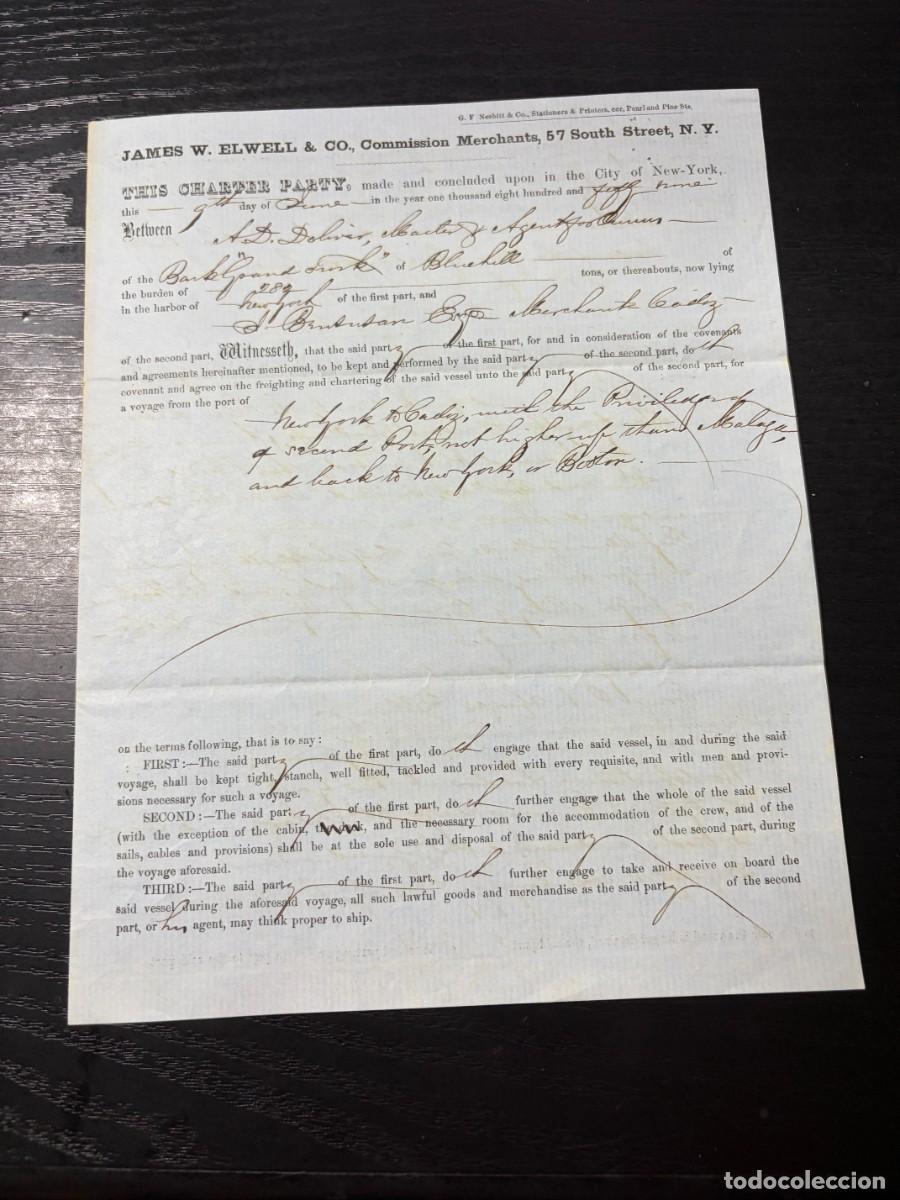 G. F Nesbitt & Co., Stationers & Printers, cor. Pearl and Pine Sts.
JAMES W. ELWELL & CO., Commission Merchants, 57 South Street, N. Y.
THIS CHARTER PARTY, made and concluded upon in the City of New-York,
this 9th day of June in the year one thousand eight hundred and fifty nine
Between A. D. Master & Agent for Owners
of the Bark "Grand Turk" of Bluehill of
the burden of 289 tons, or thereabouts, now lying
in the harbor of New York of the first part, and
Esqr Merchant Cadiz
of the second part, Witnesseth, that the said party of the first part, for and in consideration of the covenants
and agreements hereinafter mentioned, to be kept and performed by the said party of the second part, doth
covenant and agree on the freighting and chartering of the said vessel unto the said party of the second part, for
a voyage from the port of
New York to Cadiz, with the Priviledge
of second Port, not higher up than Malaga,
and back to New York, or Boston.
on the terms following, that is to say:
FIRST:—The said party of the first part, do th engage that the said vessel, in and during the said
voyage, shall be kept tight, stanch, well fitted, tackled and provided with every requisite, and with men and provi-
sions necessary for such a voyage.
SECOND:—The said party of the first part, do th further engage that the whole of the said vessel
(with the exception of the cabin, and the necessary room for the accommodation of the crew, and of the
sails, cables and provisions) shall be at the sole use and disposal of the said party of the second part, during
the voyage aforesaid.
THIRD:—The said party of the first part, do th further engage to take and receive on board the
said vessel during the aforesaid voyage, all such lawful goods and merchandise as the said party of the second
part, or his agent, may think proper to ship.
todocoleccion